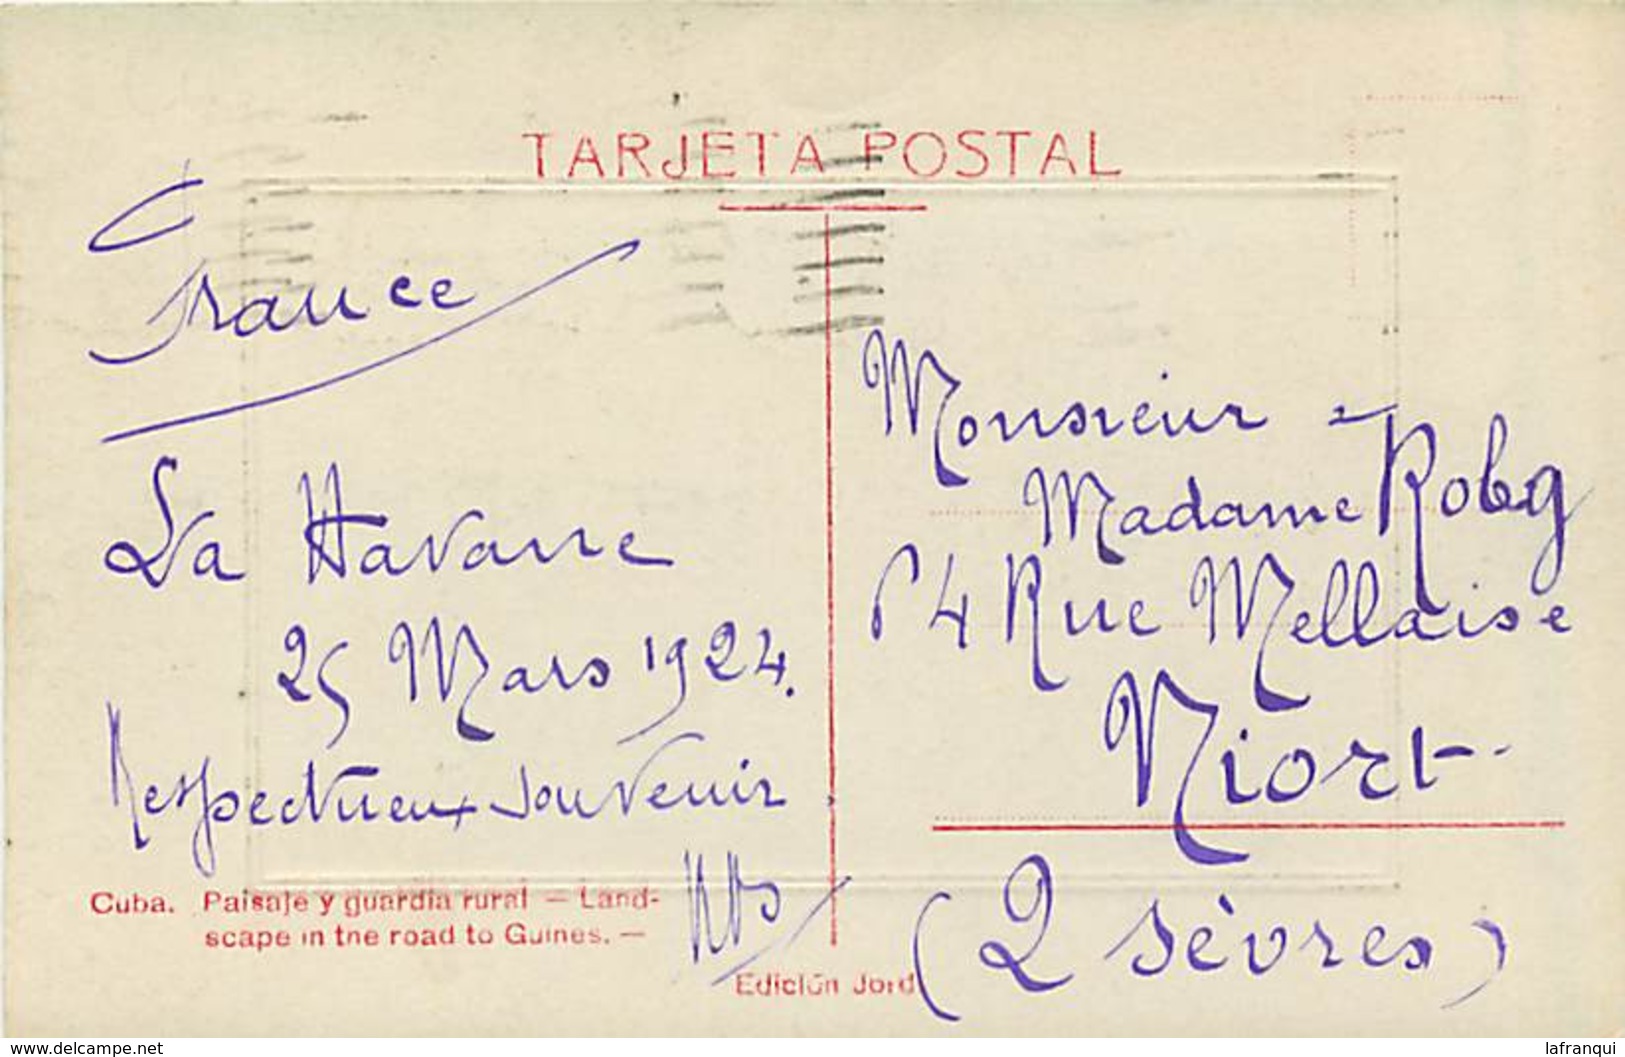 TARJETA POSTAL
France
La Havane
25 Mars 1924.
Respectueux souvenir
Cuba. Paisaje y guardia rural — Land-
scape in the road to Guines. —
Edición Jord
Monsieur
Madame
Rue Mellaise
Niort
(2 Sèvres)
www.delcampe.net
lafranqui